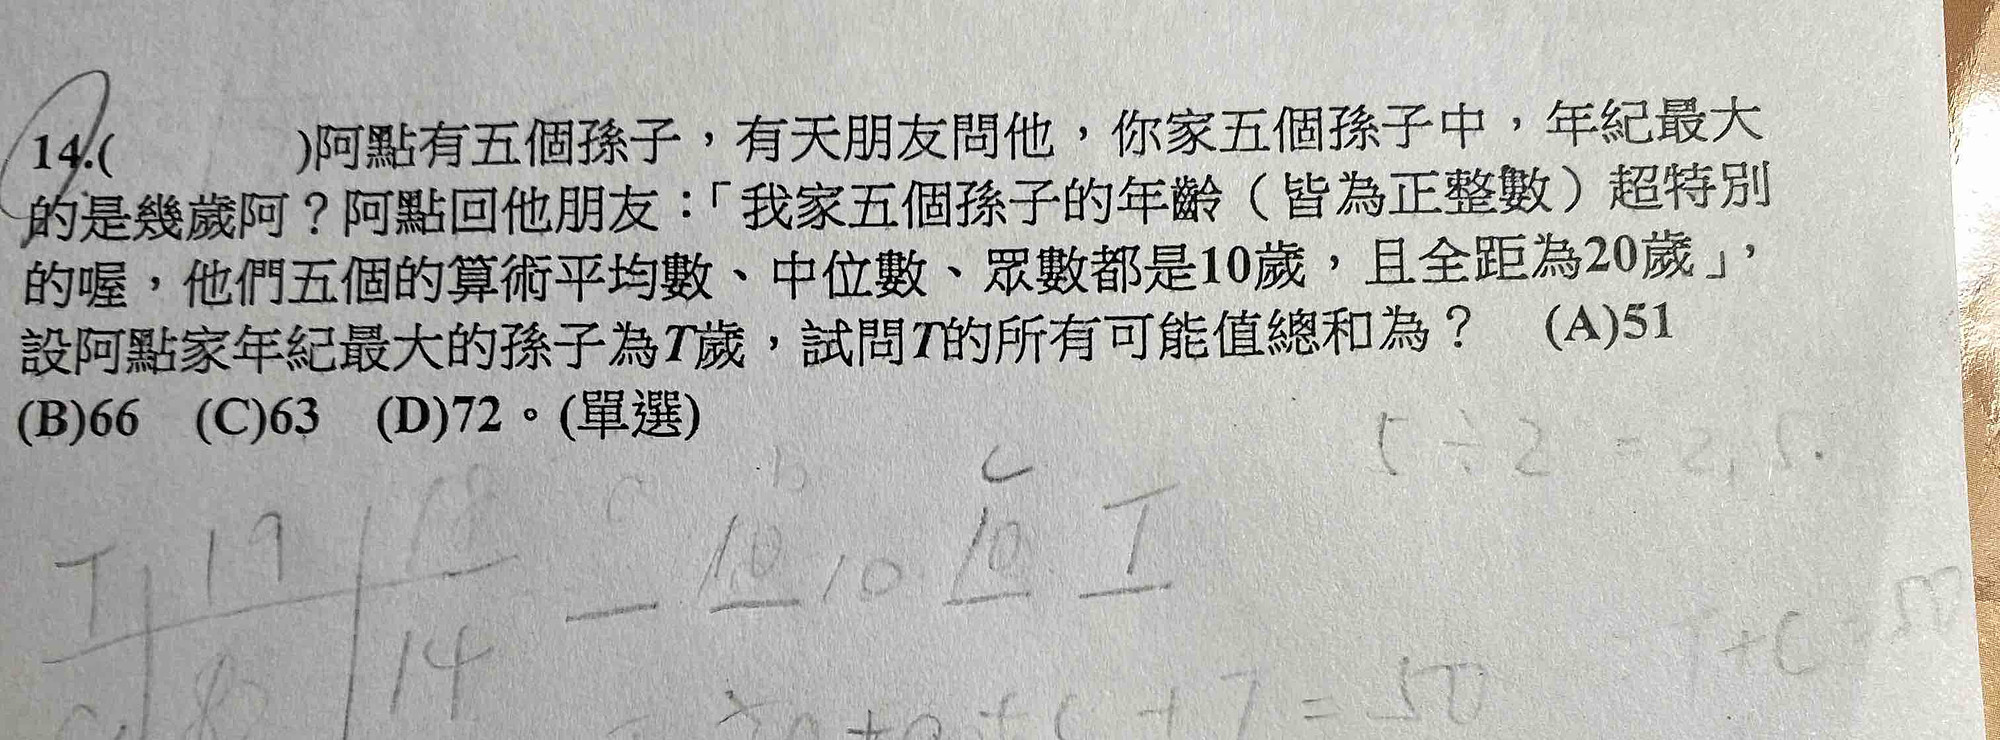 14.( )阿點有五個孫子，有天朋友問他，你家五個孫子中，年紀最大
的是幾歲阿？阿點回他朋友：「我家五個孫子的年齡（皆為正整數）超特別
的喔，他們五個的算術平均數、中位數、眾數都是10歲，且全距為20歲」，
設阿點家年紀最大的孫子為T歲，試問T的所有可能值總和為？ (A)51
(B)66 (C)63 (D)72。(單選)
5÷2=2.5.
C
T 19 18
10 10 10 T
14
+C+T=50
T+C